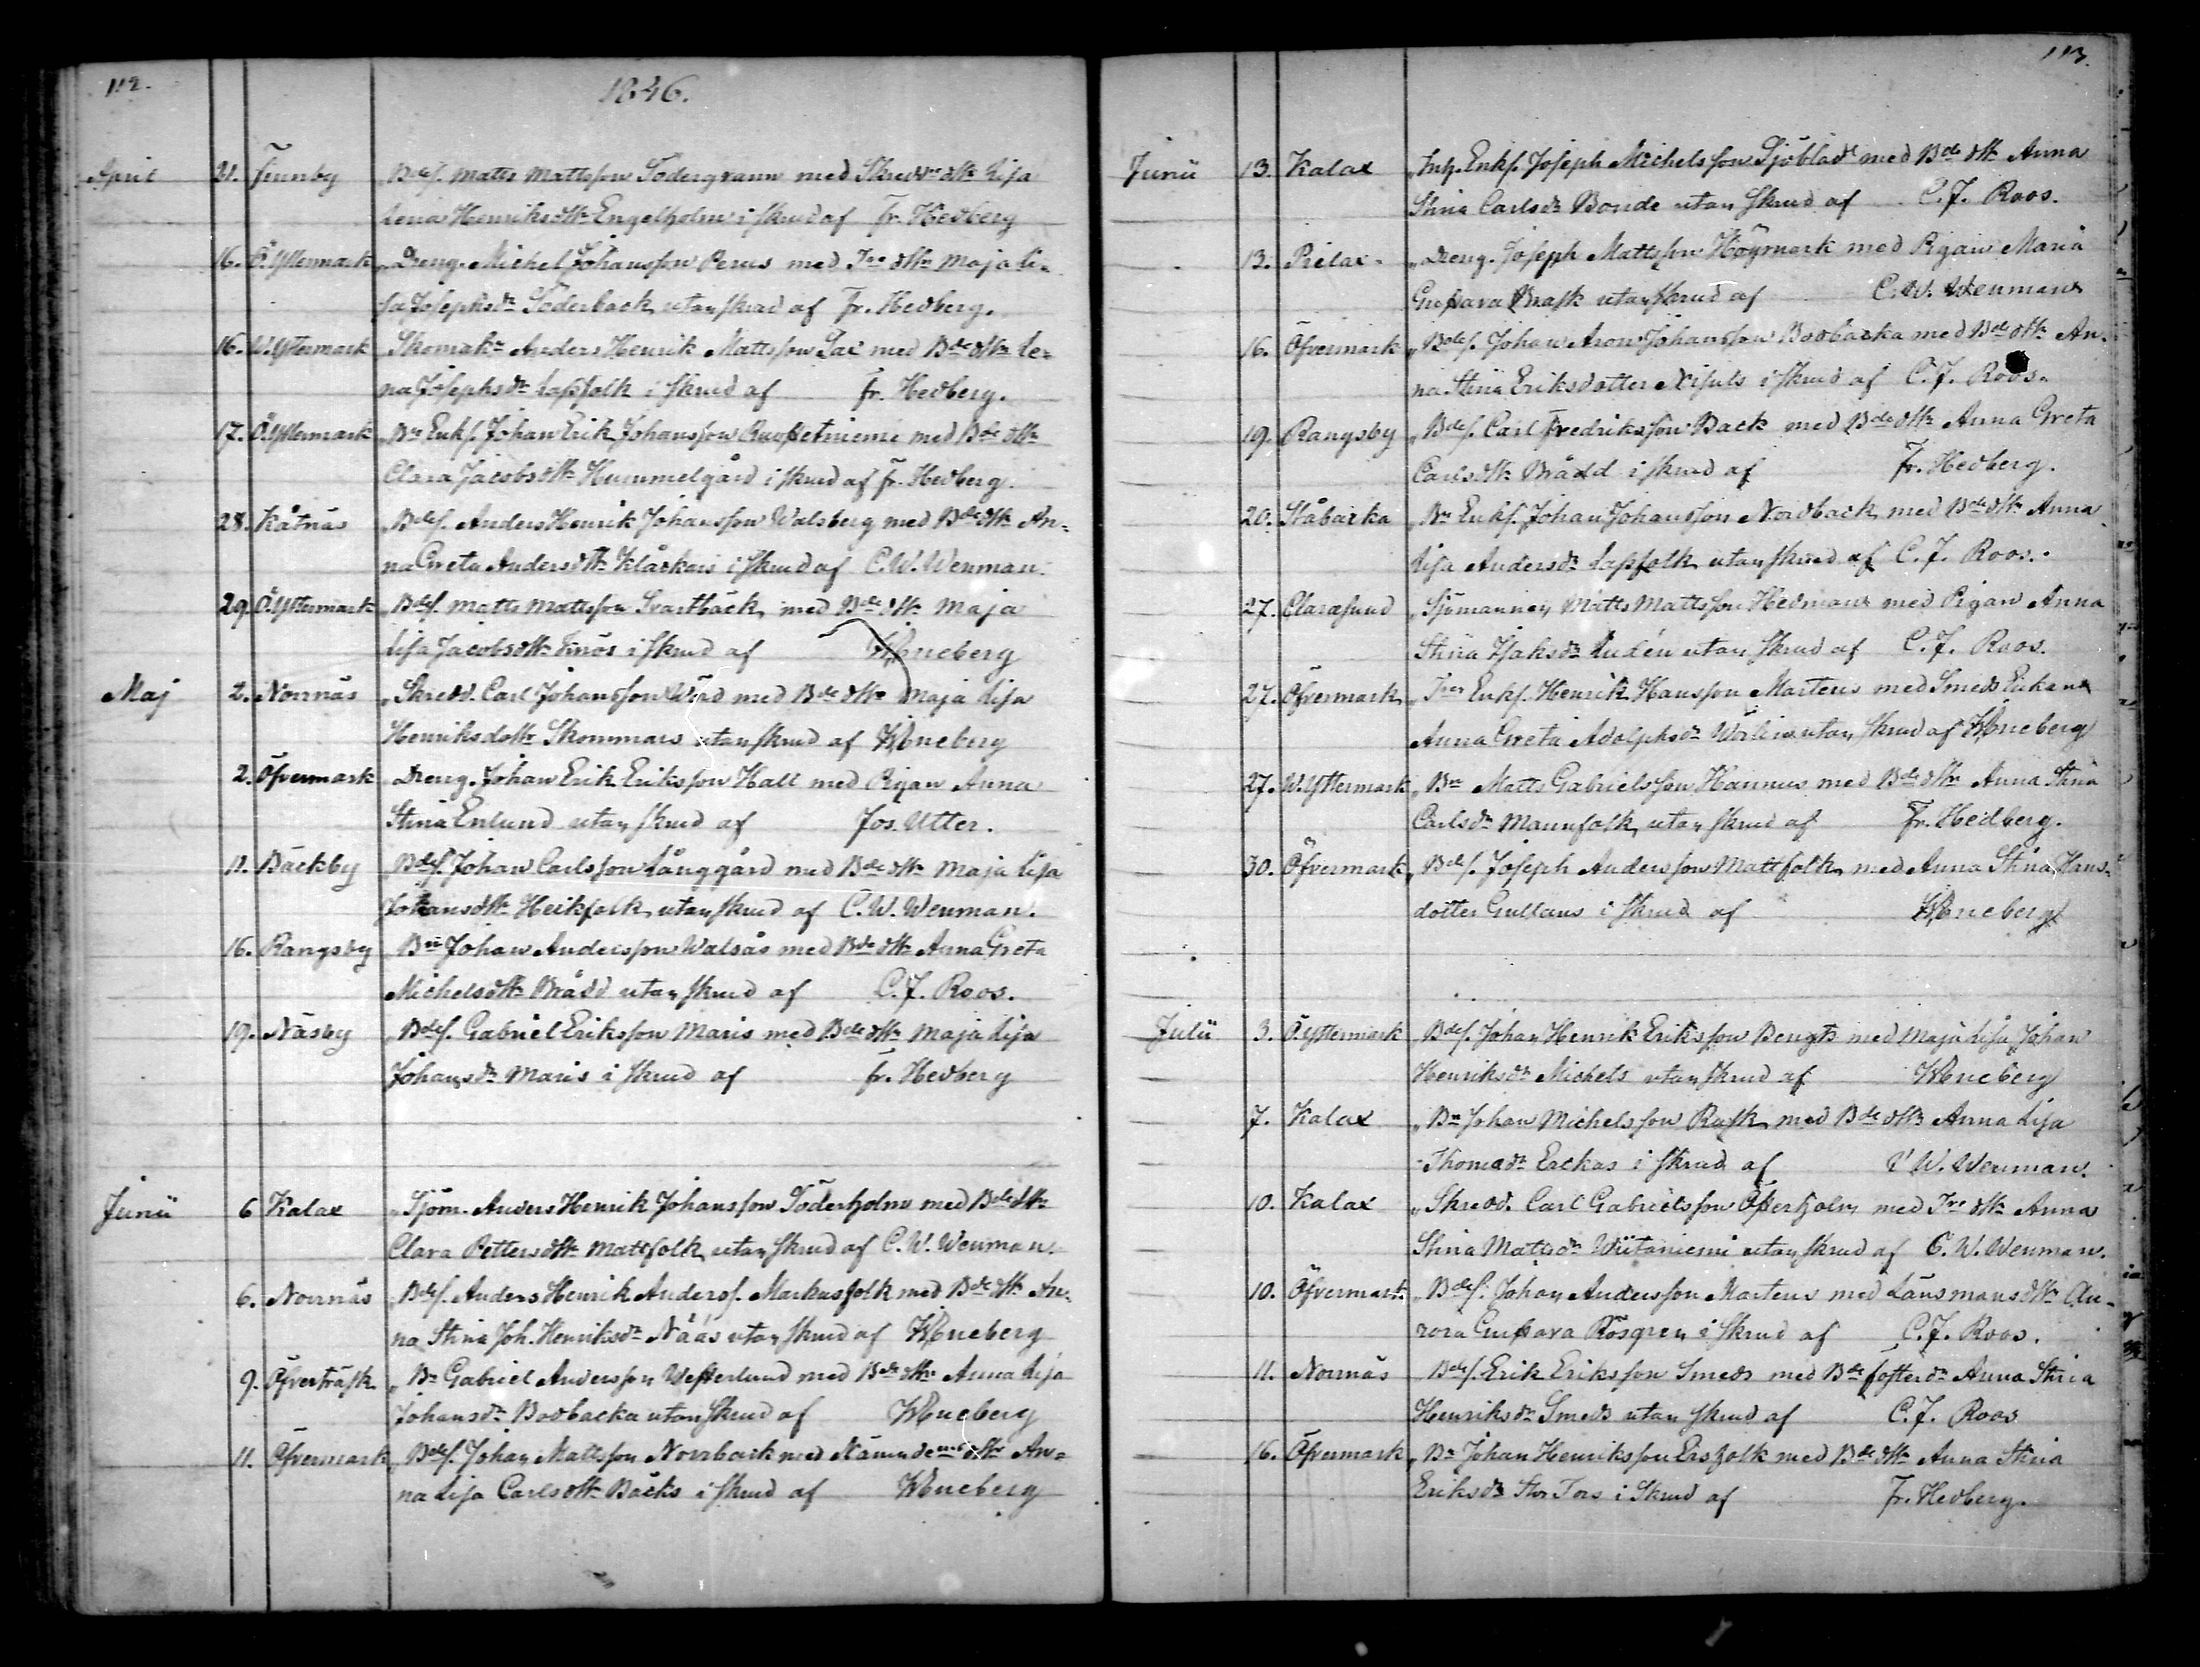 112.
1846.
April 21. Finnby Bdes. Matts Mattsson Södergrann med Skredredttr Lisa
Lena Henriksdttr Engelholm i skrud af Fr. Hedberg
16. Ö.Yttermark Dreng. Michel Johansson Perus med Trpdttr Maja Li-
sa Josephsdr Söderback utan skrud af Fr. Hedberg.
16. W.Yttermark Skomakr Anders Henrik Mattsson Lax med Bdedttr Le-
na Josephsdr Lassfolk i skrud af Fr. Hedberg.
17. Ö.Yttermark Bn Enkf. Johan Erik Johansson med Bdedttr
Clara Jacobsdttr Hummelgård i skrud af Fr. Hedberg.
28. Kåtnäs Bdes. Anders Henrik Johansson Walsberg med Bdedttr An-
na Greta Andersdttr Klåckars i skrud af C. W. Wenman.
29. Ö.Yttermark Bdes. Matts Mattsson Svartbäck med Bdedttr Maja
Lisa Jacobsdttr Finös i skrud af Weneberg
Maj 2. Norrnäs Skredd. Carl Johansson med Bdedttr Maja Lisa
Henriksdottr Skommars utan skrud af Weneberg
2. Öfvermark Dreng. Johan Erik Eriksson Hall med Pigan Anna
Stina Enlund utan skrud af Jos. Utter.
12. Bäckby Bdes. Johan Carlsson Långgård med Bdedttr Maja Lisa
Johansdttr Heikfolk utan skrud af C. W. Wenman.
16. Rangsby Bn Johan Andersson Walsås med Bdedttr Anna Greta
Michelsdttr Brådd utan skrud af C. J. Roos.
19. Näsby Bdes. Gabriel Eriksson Maris med Bdedttr Maja Lisa
Johansdr Maris i skrud af Fr. Hedberg
Junii 6 Kalax Sjöm. Anders Henrik Johansson Söderholm med Bdedttr
Clara Pettersdttr Mattfolk utan skrud af C. W. Wenman.
6. Norrnäs Bdes. Anders Henrik Anderss. Markusfolk med Bdedttr An-
na Stina Joh. Henriksdr Nääs utan skrud af Weneberg
9. Öfverträsk Bn Gabriel Andersson Westerlund med Bdedttr Anna Lisa
Johansdr Bodbacka utan skrud af Weneberg
11. Öfvermark Bdes. Johan Mattsson Norrback med Nämndemsdttr An-
na Lisa Carlsdttr Bäcks i skrud af Weneberg
113.
Junii 13. Kalax Inh. Enkf. Joseph Michelsson Sjöblad med Bdedttr Anna
Stina Carlsdr Bonde utan skrud af C. J. Roos.
13. Pielax Dreng. Joseph Mattsson Högmark med Pigan Maria
Gustava Brask utan skrud af C. W. Wenman
16. Öfvermark Bdes. Johan Aron Johansson Bodbacka med Bdedttr An-
na Stina Eriksdotter Nisuls i skrud af C. J. Roos.
19. Rangsby Bdes. Carl Fredriksson Back med Bdedttr Anna Greta
Carlsdttr Brådd i skrud af Fr. Hedberg.
20. Ståbacka Bn Enkf. Johan Johansson Nordback med Bdedttr Anna
Lisa Andersdr Lassfolk utan skrud af C. J. Roos.
27. Claraesund Sjömannen Matts Mattsson Hedman med Pigan Anna
Stina Isaksdr Lindén utan skrud af C. J. Roos.
27. Öfvermark Trpr Enkf. Henrik Hansson Martens med Smeds Enkan
Anna Greta Adolphsdr utan skrud af Weneberg
27. W.Yttermark Bn Matts Gabrielsson Hannus med Bdedttr Anna Stina
Carlsdr Mannfolk utan skrud af Fr. Hedberg.
30. Öfvermark Bdes. Joseph Andersson Mattfolk med Anna Stina Hans-
dotter Gullans i skrud af Weneberg
Julii 3. Ö.Yttermark Bdes. Johan Henrik Eriksson Bengts med Maja Lisa Johan
Henriksdr Michels utan skrud af Weneberg
7. Kalax Bn Johan Michelsson Rusk med Bdedttr Anna Lisa
Thomædr Erckas i skrud af C W. Wenman.
10. Kalax Skredd. Carl Gabrielsson Österholm med Trpdttr Anna
Stina Mattsdr Wiitaniemi utan skrud af C. W. Wenman.
10. Öfvermark Bdes. Johan Andersson Martens med Länsmansdttr Au-
rora Gustava Rosgren i skrud af C. J. Roos.
11. Norrnäs Bdes. Erik Eriksson Smeds med Bde fosterdr Anna Stina
Henriksdr Smeds utan skrud af C. J. Roos
16. Öfvermark Bn Johan Henriksson Ersfolk med Bdedttr Anna Stina
Eriksdr Stor Tors i skrud af Fr. Hedberg.